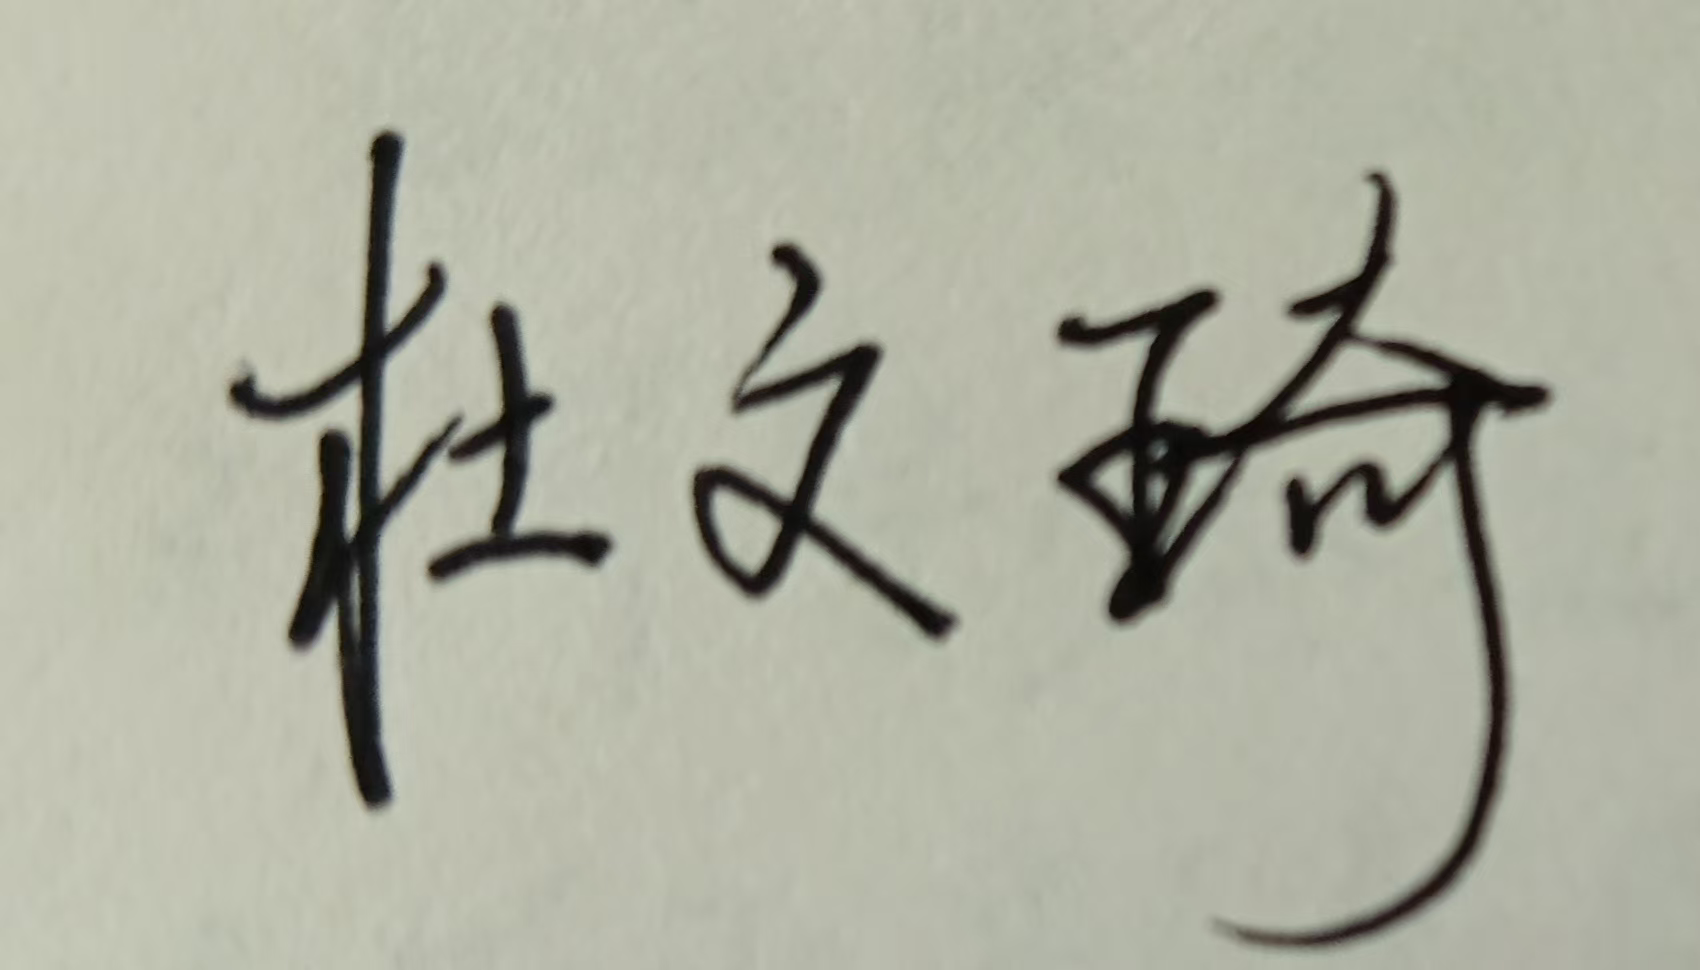 杜文琦